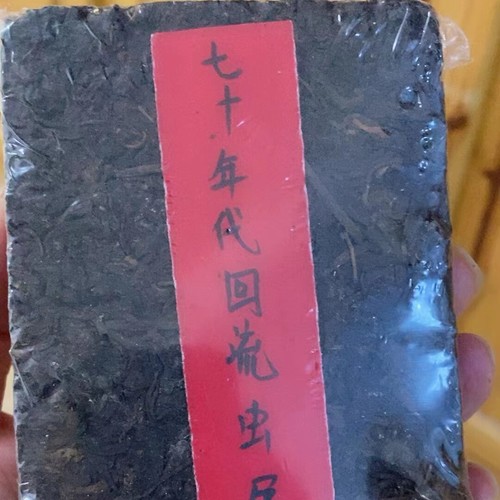 七十年代回流虫